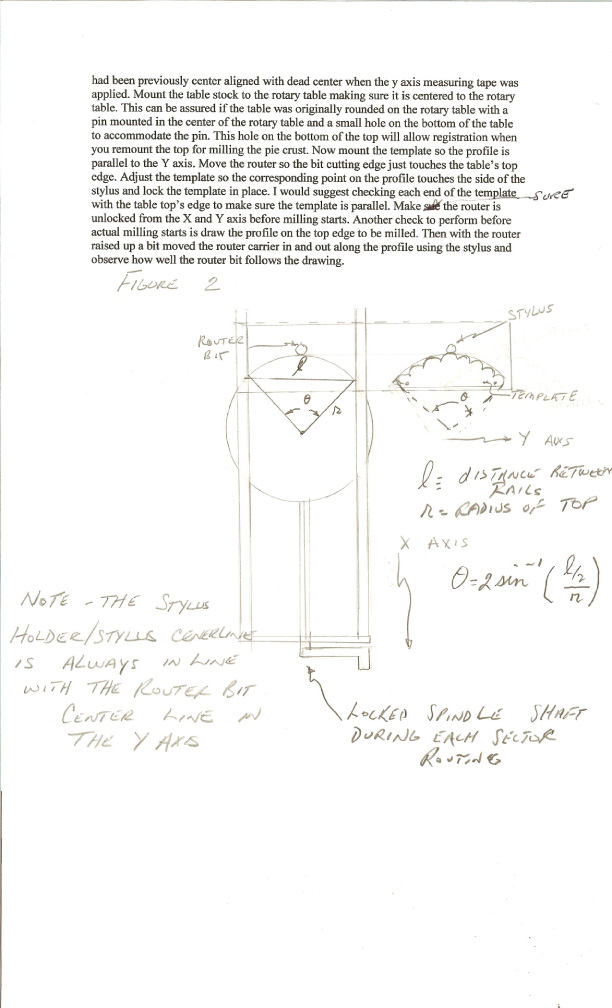 had been previously center aligned with dead center when the y axis measuring tape was
applied. Mount the table stock to the rotary table making sure it is centered to the rotary
table. This can be assured if the table was originally rounded on the rotary table with a
pin mounted in the center of the rotary table and a small hole on the bottom of the table
to accommodate the pin. This hole on the bottom of the top will allow registration when
you remount the top for milling the pie crust. Now mount the template so the profile is
parallel to the Y axis. Move the router so the bit cutting edge just touches the table's top
edge. Adjust the template so the corresponding point on the profile touches the side of the
stylus and lock the template in place. I would suggest checking each end of the template
SURE
with the table top's edge to make sure the template is parallel. Make the router is
unlocked from the X and Y axis before milling starts. Another check to perform before
actual milling starts is draw the profile on the top edge to be milled. Then with the router
raised up a bit moved the router carrier in and out along the profile using the stylus and
observe how well the router bit follows the drawing.
FIGURE 2
STYLUS
ROUTER
BIT
l
θ
r
θ
TEMPLATE
Y AXIS
l = DISTANCE BETWEEN
RAILS
r = RADIUS OF TOP
X AXIS
θ = 2 sin⁻¹ (l/2 / r)
NOTE - THE STYLUS
HOLDER/STYLUS CENERLINE
IS ALWAYS IN LINE
WITH THE ROUTER BIT
CENTER LINE IN
THE Y AXIS
LOCKED SPINDLE SHAFT
DURING EACH SECTOR
ROUTING